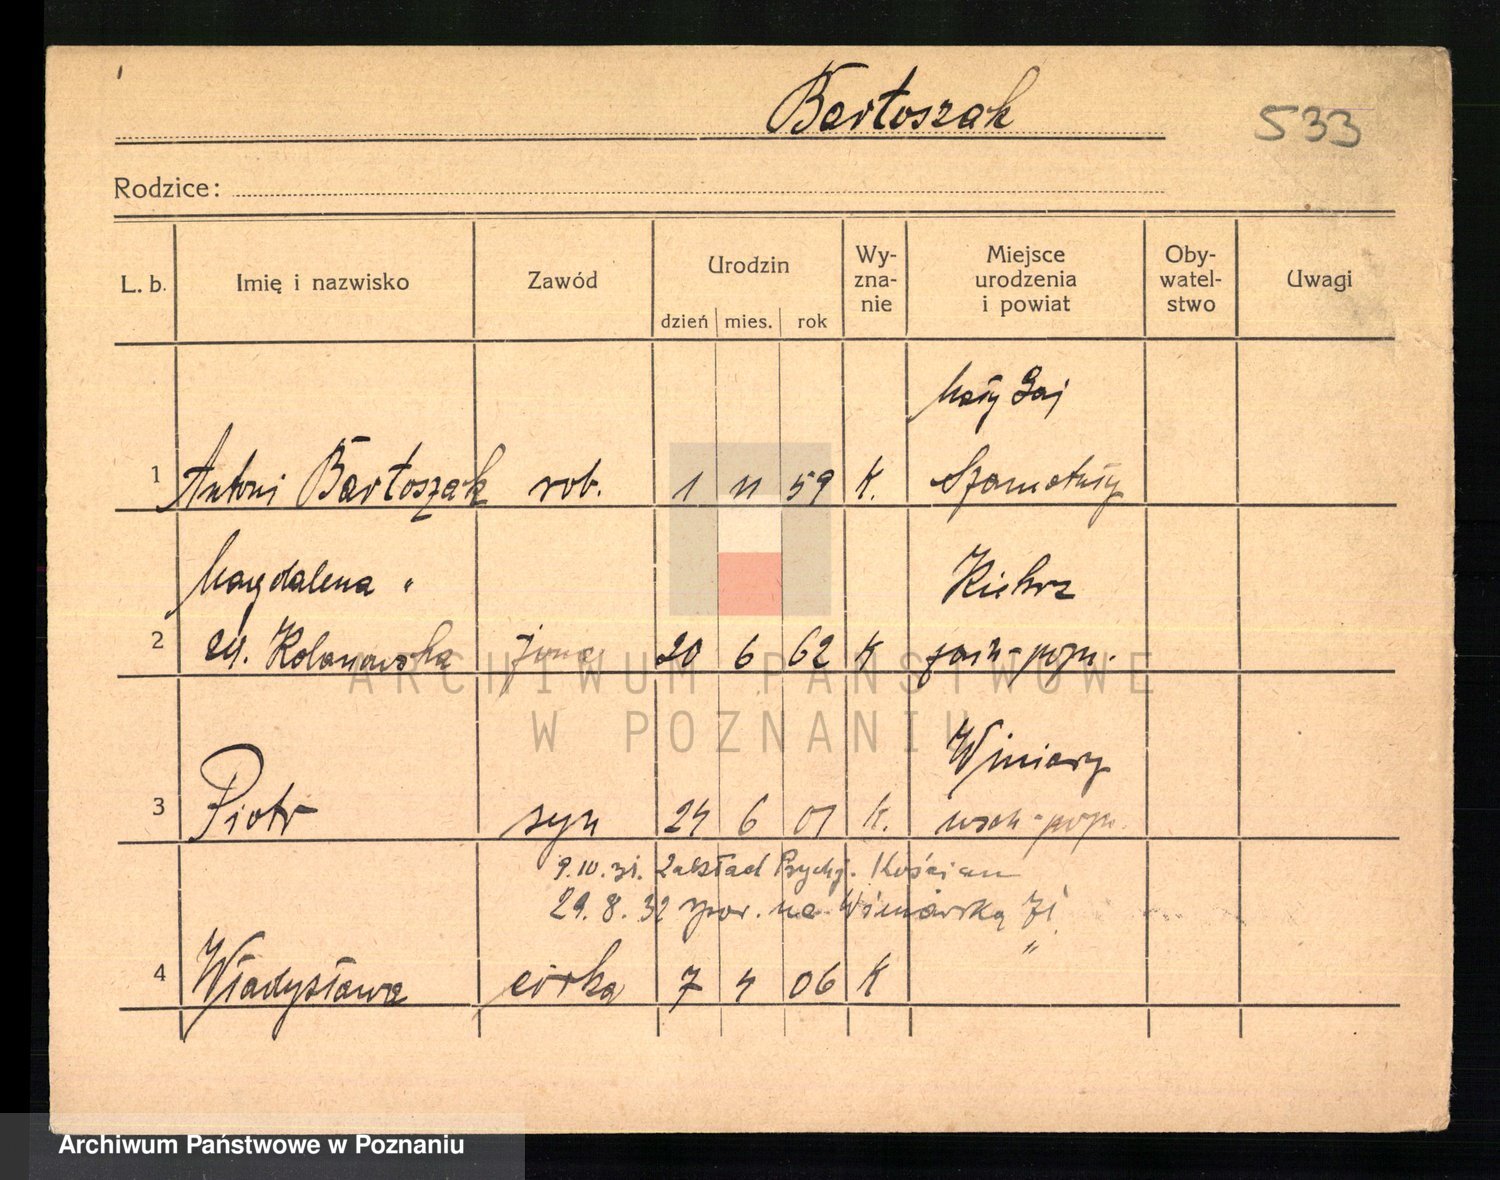 Bartoszak
533
Rodzice:
L. b.
Imię i nazwisko
Zawód
Urodzin
dzień mies. rok
Wy-
zna-
nie
Miejsce
urodzenia
i powiat
Oby-
watel-
stwo
Uwagi
Mały Gaj
1 Antoni Bartoszak rob. 1 11 59 K. Szamotuły
Magdalena " Kiekrz
2 Kolanowska żona 20 6 62 K zach-pozn.
Winiary
3 Piotr syn 24 6 01 K. wsch-pozn.
9.10.31. Zakład Psych. Kościan
29. 8. 32 na Winiarską 71
"
4 Władysława córka 7 4 06 K
ARCHIWUM PAŃSTWOWE
W POZNANIU
Archiwum Państwowe w Poznaniu